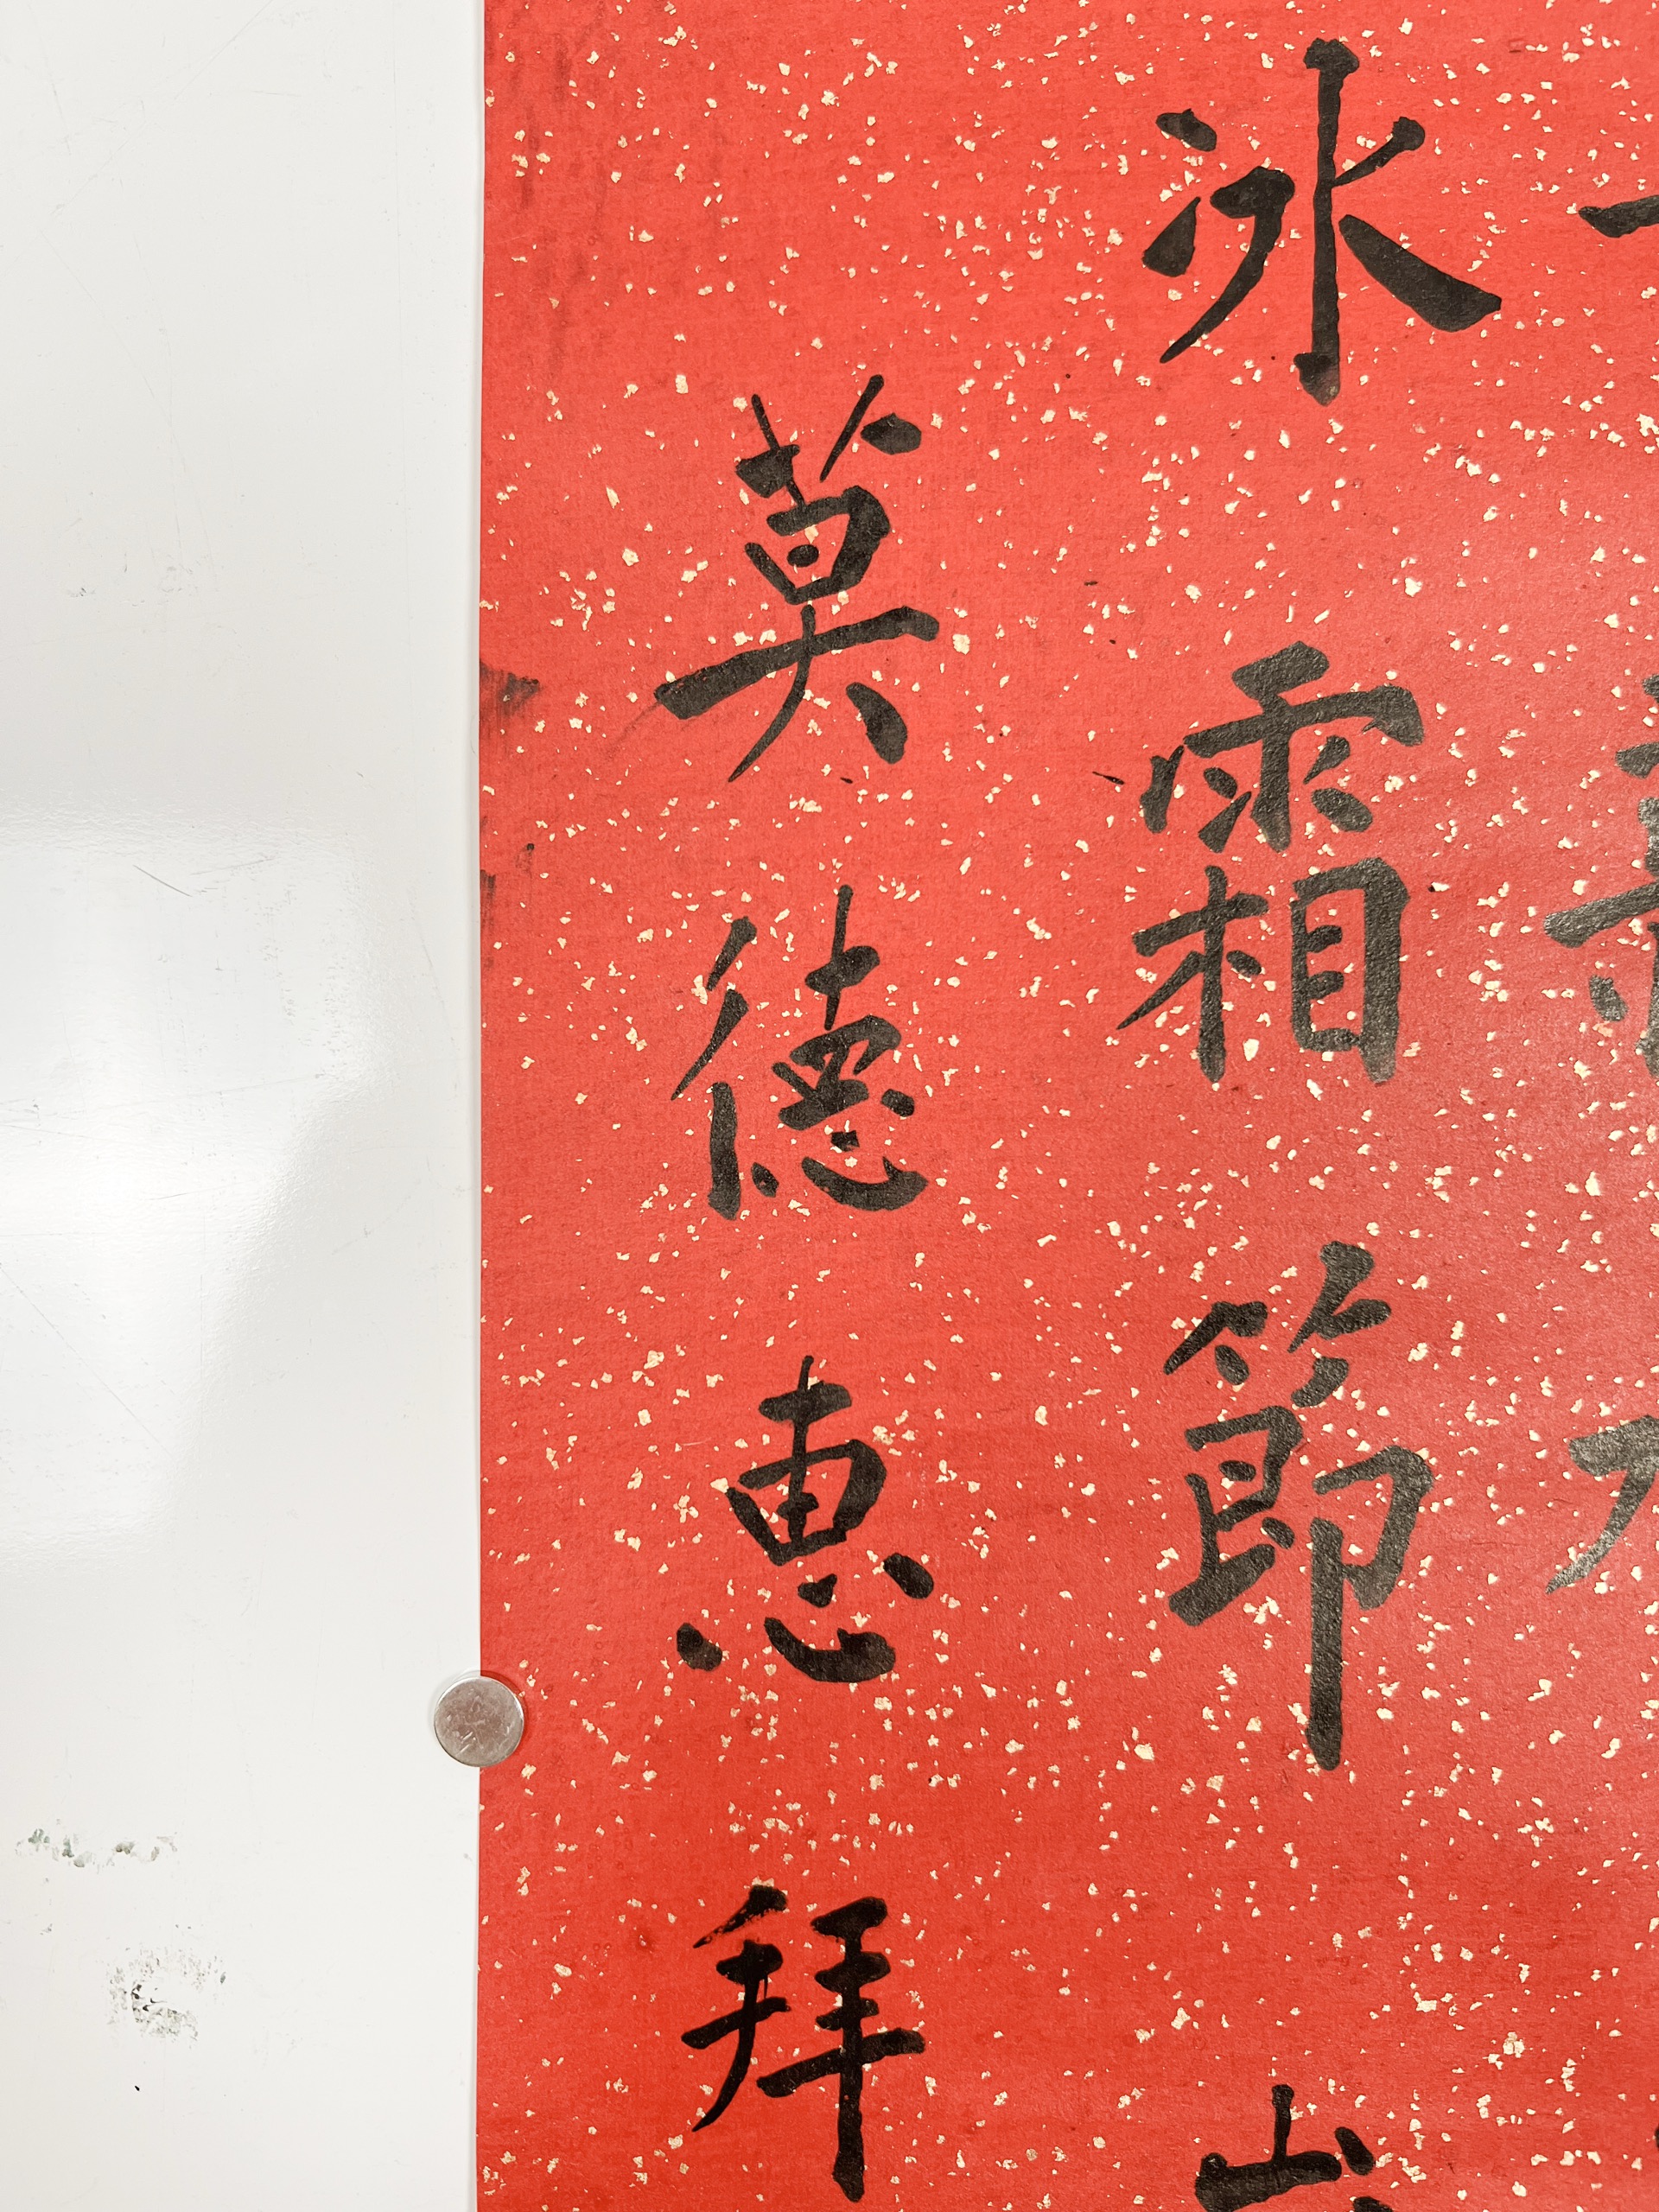 冰霜節
莫德惠拜